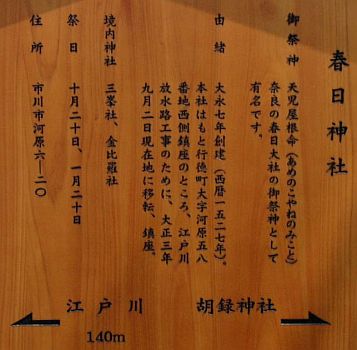 春日神社
御祭神　天児屋根命（あめのこやねのみこと）
奈良の春日大社の御祭神として
有名です。
由緒　大永七年創建（西暦一五二七年）。
本社はもと行徳町大字河原五八
番地西側鎮座のところ、江戸川
放水路工事のために、大正三年
九月二日現在地に移転、鎮座。
境内神社　三峯社、金比羅社
祭日　十月二十日、一月二十日
住所　市川市河原六ー二〇
江戸川　胡録神社
140m